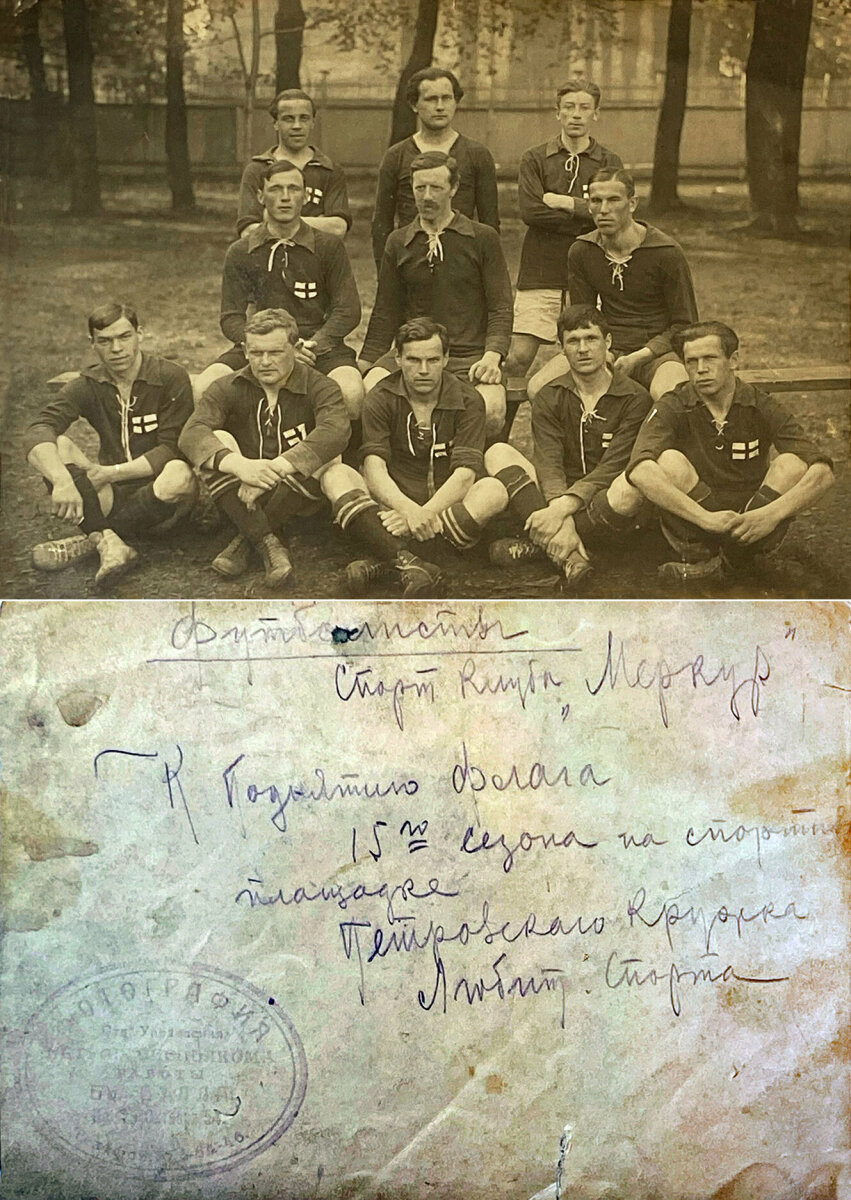 Футболисты
Спорт клуба „Меркур"
К поднятию флага
15го сезона на спортн
площадке
Петровскаго Кружка
Любит. Спорта
ФОТОГРАФИЯ